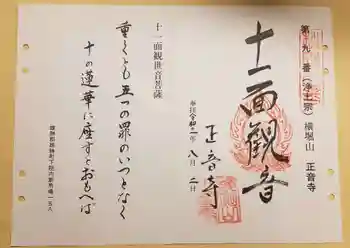 第九番(浄土宗) 横堀山 正音寺
十一面觀音
奉拝 令和二年八月二日
正音寺
十一面観世音菩薩
重くとも五つの罪のいつとなく
十の蓮華に座すとおもへば